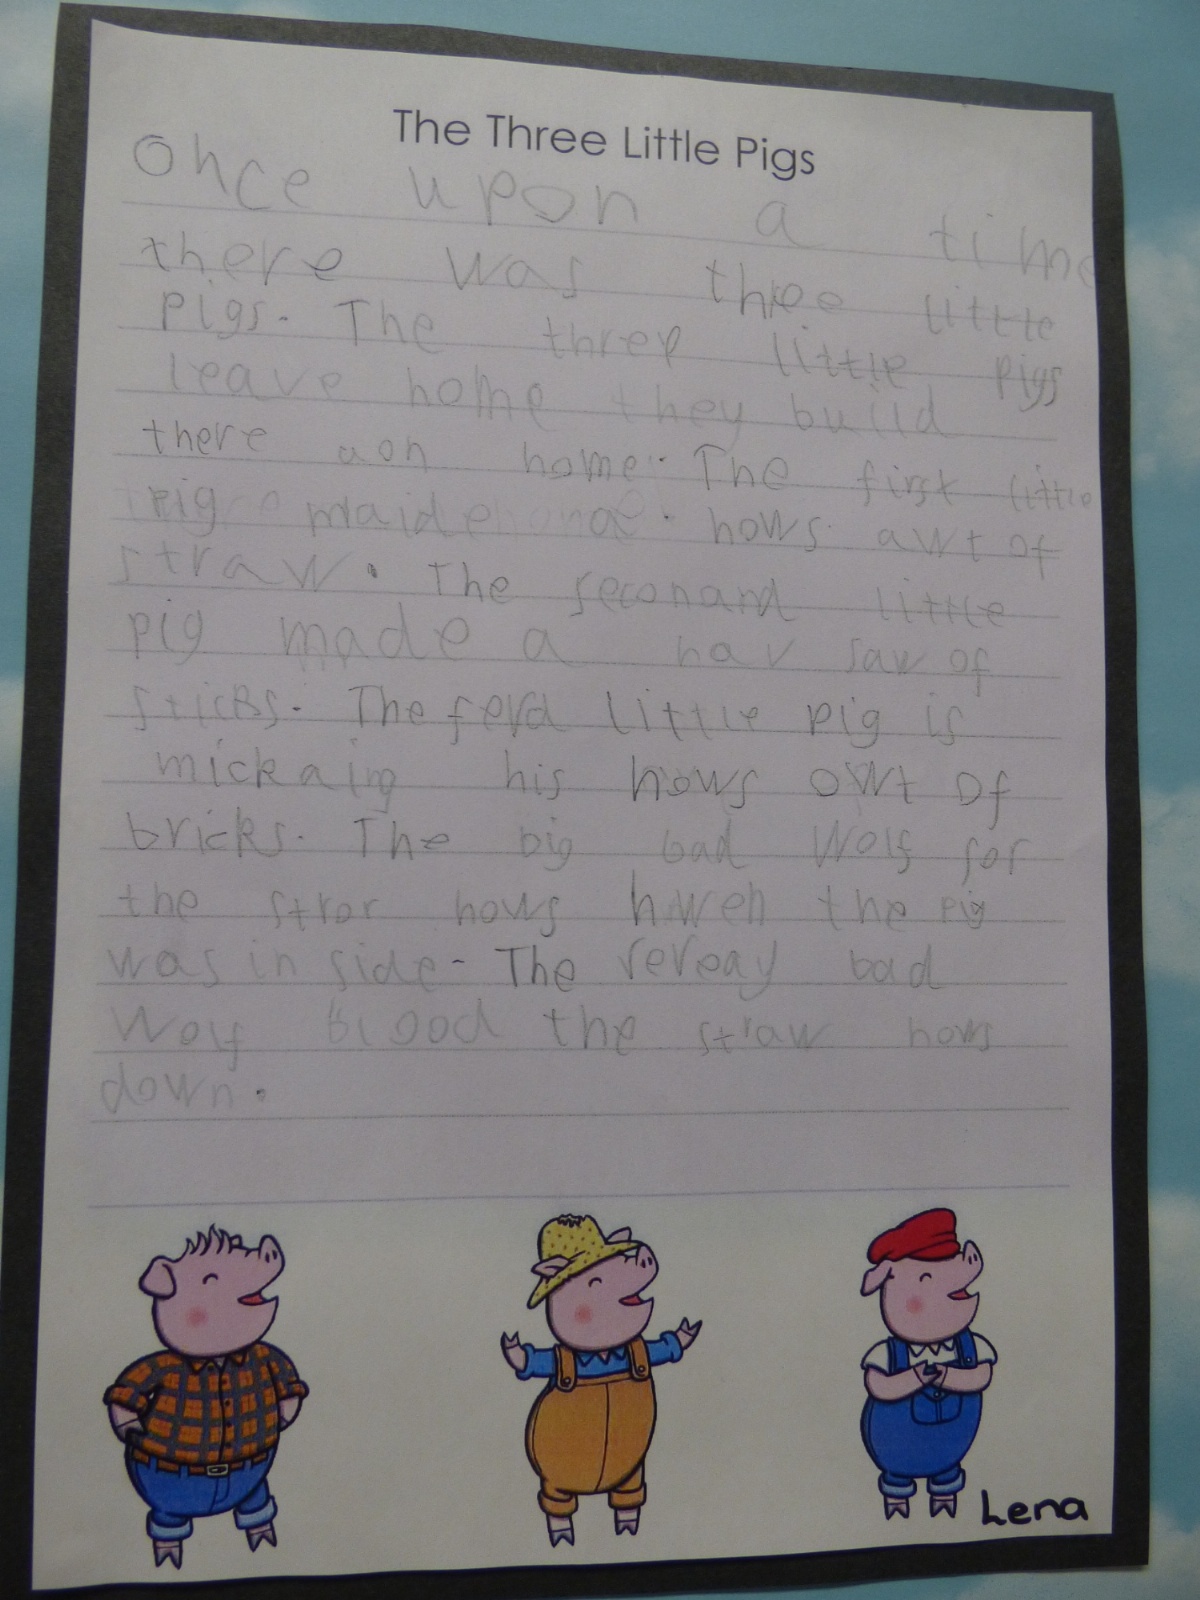 The Three Little Pigs
once upon a time
there was three little
pigs. The three little pigs
leave home they build
there aon home. The first little
pig maide a. hows awt of
straw. The seconand little
pig made a hav saw of
sticks. The ferd little pig is
mickaing his hows owt of
bricks. The big bad Wolf for
the stror hows hwen the pig
was in side. The rereay bad
Wolf blood the straw hows
down.
Lena